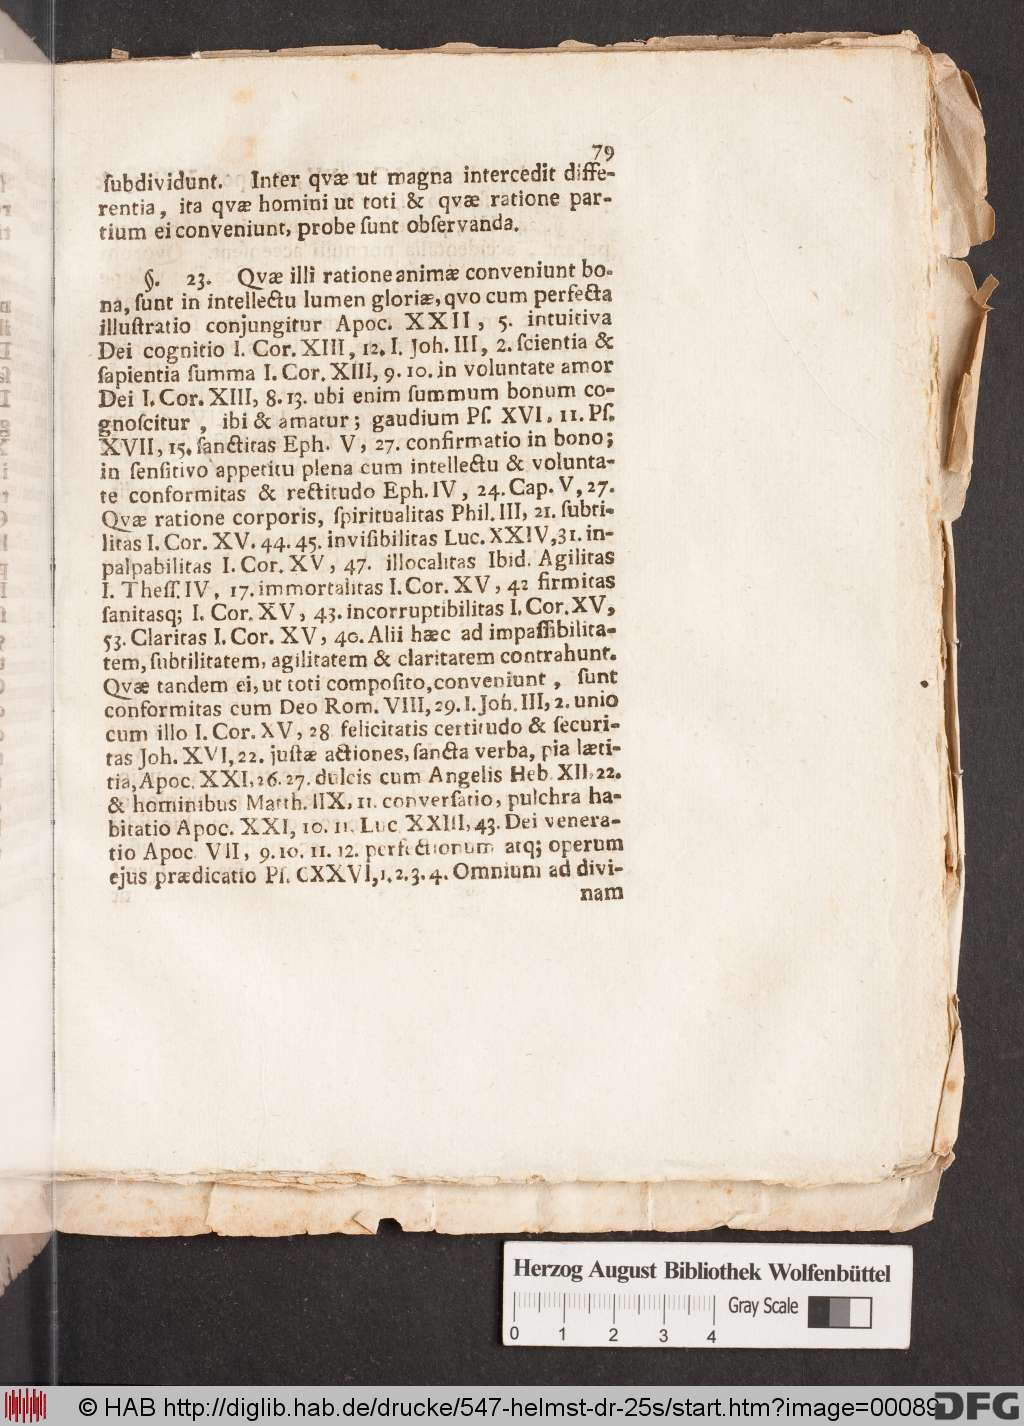 79
ſubdividunt. Inter qvæ ut magna intercedit diffe-
rentia, ita qvæ homini ut toti & qvæ ratione par-
tium ei conveniunt, probe ſunt obſervanda.
§. 23. Qvæ illi ratione animæ conveniunt bo-
na, ſunt in intellectu lumen gloriæ, qvo cum perfecta
illuſtratio conjungitur Apoc. XXII, 5. intuitiva
Dei cognitio I. Cor. XIII, 12. I. Joh. III, 2. ſcientia &
ſapientia ſumma I. Cor. XIII, 9. 10. in voluntate amor
Dei I. Cor. XIII, 8. 13. ubi enim ſummum bonum co-
gnoſcitur, ibi & amatur; gaudium Pſ. XVI. 11. Pſ.
XVII, 15. ſanctitas Eph. V, 27. confirmatio in bono;
in ſenſitivo appetitu plena cum intellectu & volunta-
te conformitas & rectitudo Eph. IV, 24. Cap. V, 27.
Qvæ ratione corporis, ſpiritualitas Phil. III, 21. ſubti-
litas I. Cor. XV. 44. 45. inviſibilitas Luc. XXIV, 31. in-
palpabilitas I. Cor. XV, 47. illocalitas Ibid. Agilitas
I. Theſſ. IV, 17. immortalitas I. Cor. XV, 42 firmitas
ſanitasq; I. Cor. XV, 43. incorruptibilitas I. Cor. XV,
53. Claritas I. Cor. XV, 40. Alii hæc ad impaſſibilita-
tem, ſubtilitatem, agilitatem & claritatem contrahunt.
Qvæ tandem ei, ut toti compoſito, conveniunt, ſunt
conformitas cum Deo Rom. VIII, 29. I. Joh. III, 2. unio
cum illo I. Cor. XV, 28 felicitatis certitudo & ſecuri-
tas Joh. XVI, 22. juſtæ actiones, ſancta verba, pia læti-
tia, Apoc. XXI, 26. 27. dulcis cum Angelis Heb. XII, 22.
& hominibus Matth. IIX, 11. converſatio, pulchra ha-
bitatio Apoc. XXI, 10. 11. Luc XXIII, 43. Dei venera-
tio Apoc. VII, 9. 10. 11. 12. perfectionum atq; operum
ejus prædicatio Pſ. CXXVI, 1. 2. 3. 4. Omnium ad divi-
nam
Herzog August Bibliothek Wolfenbüttel
Gray Scale
0 1 2 3 4
© HAB http://diglib.hab.de/drucke/547-helmst-dr-25s/start.htm?image=00089
DFG